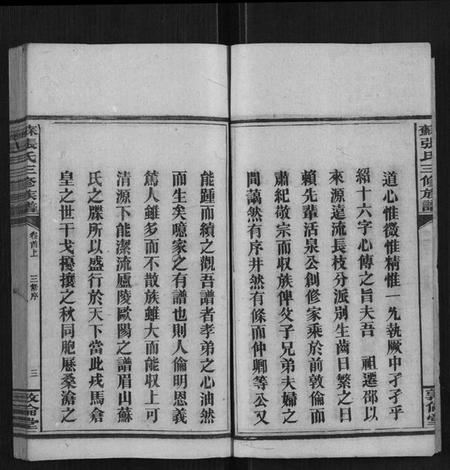 蘇張氏三修族譜
敦倫堂
道心惟微惟精惟一允執厥中孑孑乎
紹十六字心傳之旨夫吾 祖遷邵以
來源遠流長枝分派別生齒日繁之日
賴先輩活泉公創修家乘於前敦倫而
肅紀敬宗而收族俾父子兄弟夫婦之
間藹然有序井然有條而仲卿等公又
能踵而續之觀吾譜者孝弟之心油然
而生矣噫家之有譜也則人倫明恩義
篤人雖多而不散族雖大而能收上可
清源下能潔流廬陵歐陽之譜眉山蘇
氏之牒所以盛行於天下當此戎馬倉
皇之世干戈擾攘之秋同胞屢桑滄之
蘇張氏三修族譜
卷首上
三修序
三
敦倫堂